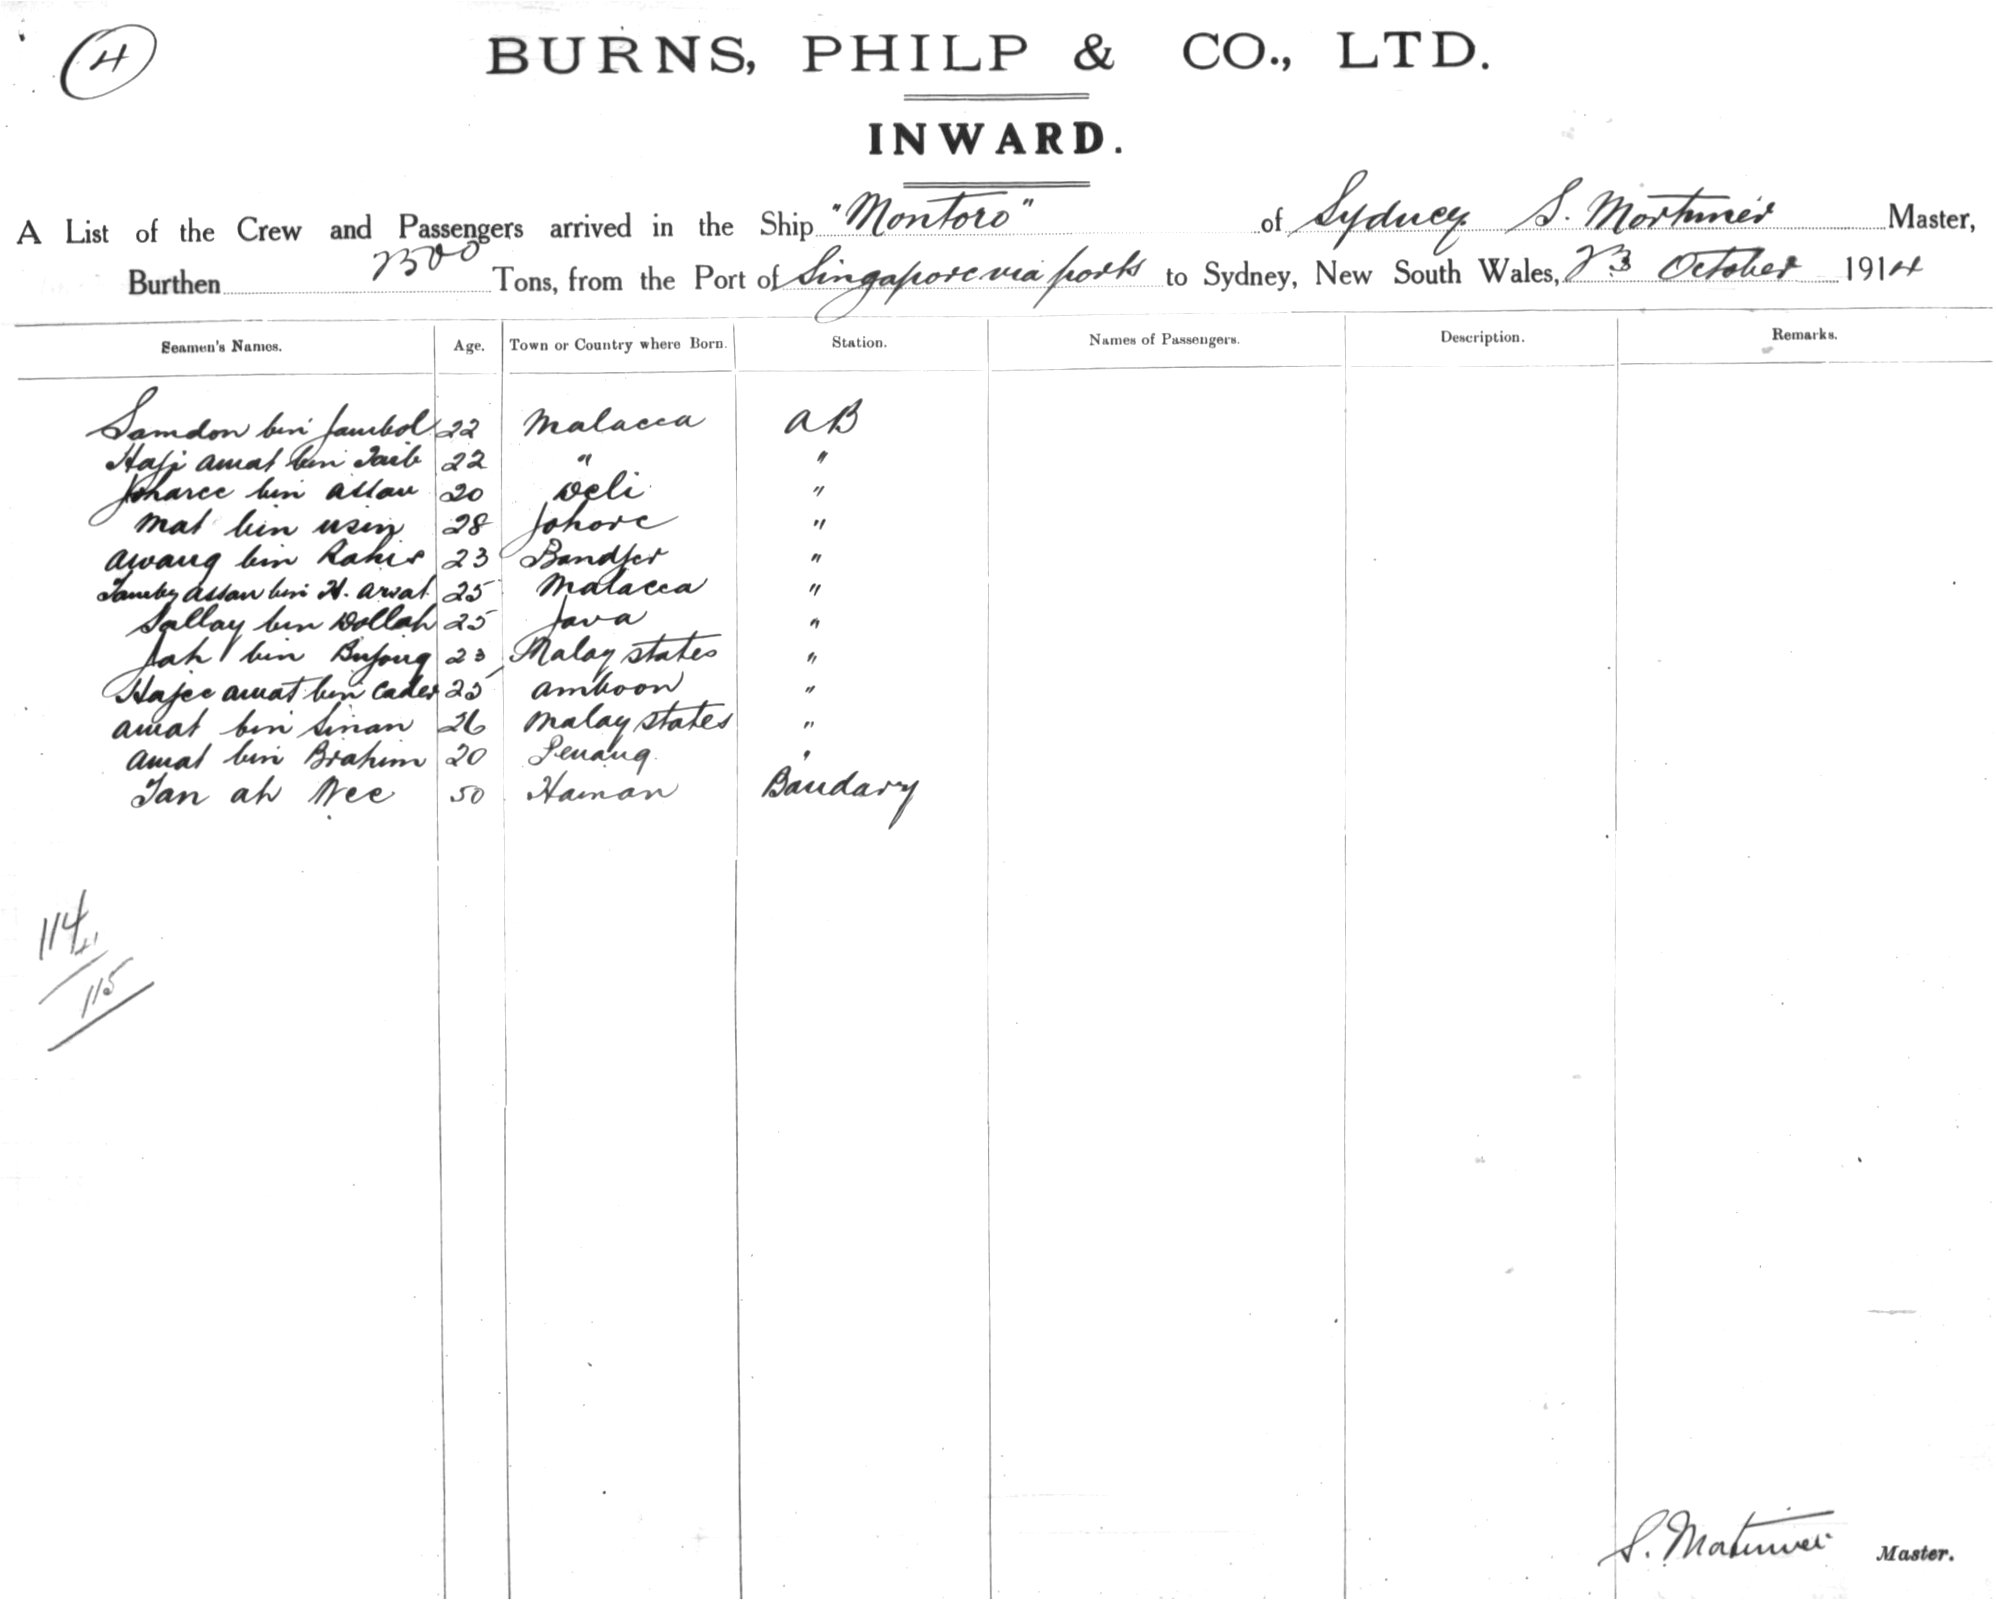 4
BURNS, PHILP & CO., LTD.
INWARD.
A List of the Crew and Passengers arrived in the Ship "Montoro" of Sydney S. Mortimer Master,
Burthen Tons, from the Port of Singapore via ports to Sydney, New South Wales, 23 October 1914
Seamen's Names. Age. Town or Country where Born. Station. Names of Passengers. Description. Remarks.
Samdon bin Jambol 22 Malacca AB
Haji Amat bin Taib 22 " "
bin Assan 20 Deli "
Mat bin Usin 28 Johore "
Awang bin 23 "
Tamby Assan bin H. 25 Malacca "
Sallay bin Dollah 25 Java "
Jah bin Bujong 23 Malay States "
Hajee Amat bin Cader 25 Amboon "
Amat bin Sinan 26 Malay States "
Amat bin Brahim 20 Penang "
Tan Ah Wee 50 Hainan Bandary
114
115
S. Mortimer Master.